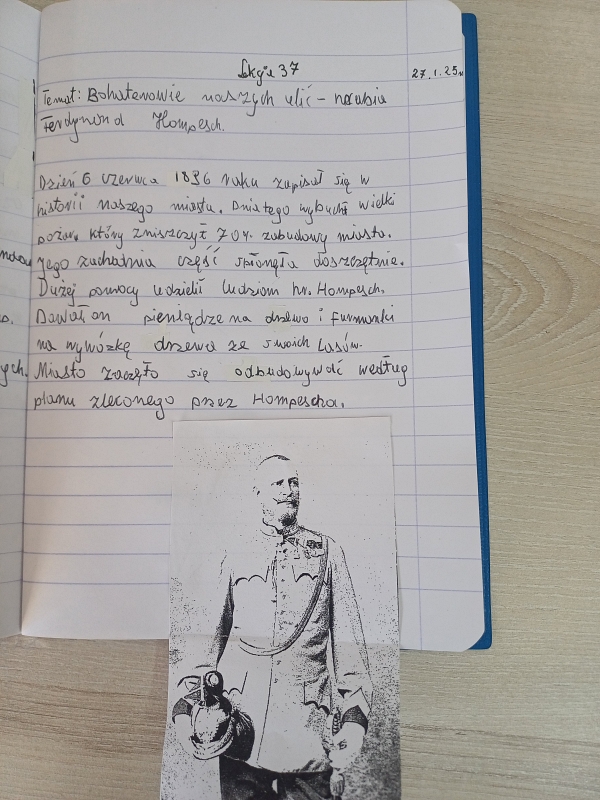 Lekcja 37
27.1.25r.
Temat: Bohaterowie naszych ulic - hrabia
Ferdynand Hompesch.
Dzień 6 czerwca 1836 roku zapisał się w
historii naszego miasta. Dnia tego wybuchł wielki
pożar, który zniszczył 70% zabudowy miasta.
Jego zachodnia część spłonęła doszczętnie.
Dużej pomocy udzielił ludziom hr. Hompesch.
Dawał on pieniądze na drzewo i furmanki
na wywózkę drzewa ze swoich lasów.
Miasto zaczęło się odbudowywać według
planu zleconego przez Hompescha.
ych.